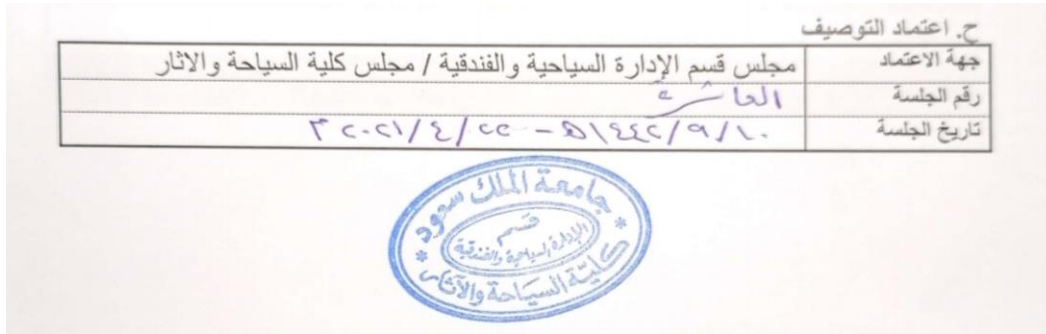 ح. اعتماد التوصيف
جهة الاعتماد مجلس قسم الإدارة السياحية والفندقية / مجلس كلية السياحة والاثار
رقم الجلسة العاشرة
تاريخ الجلسة ١٤٤٢/٩/١٠هـ - ٢٠٢١/٤/٢٢م
جامعة الملك سعود
قسم
الإدارة السياحية والفندقية
كلية السياحة والآثار